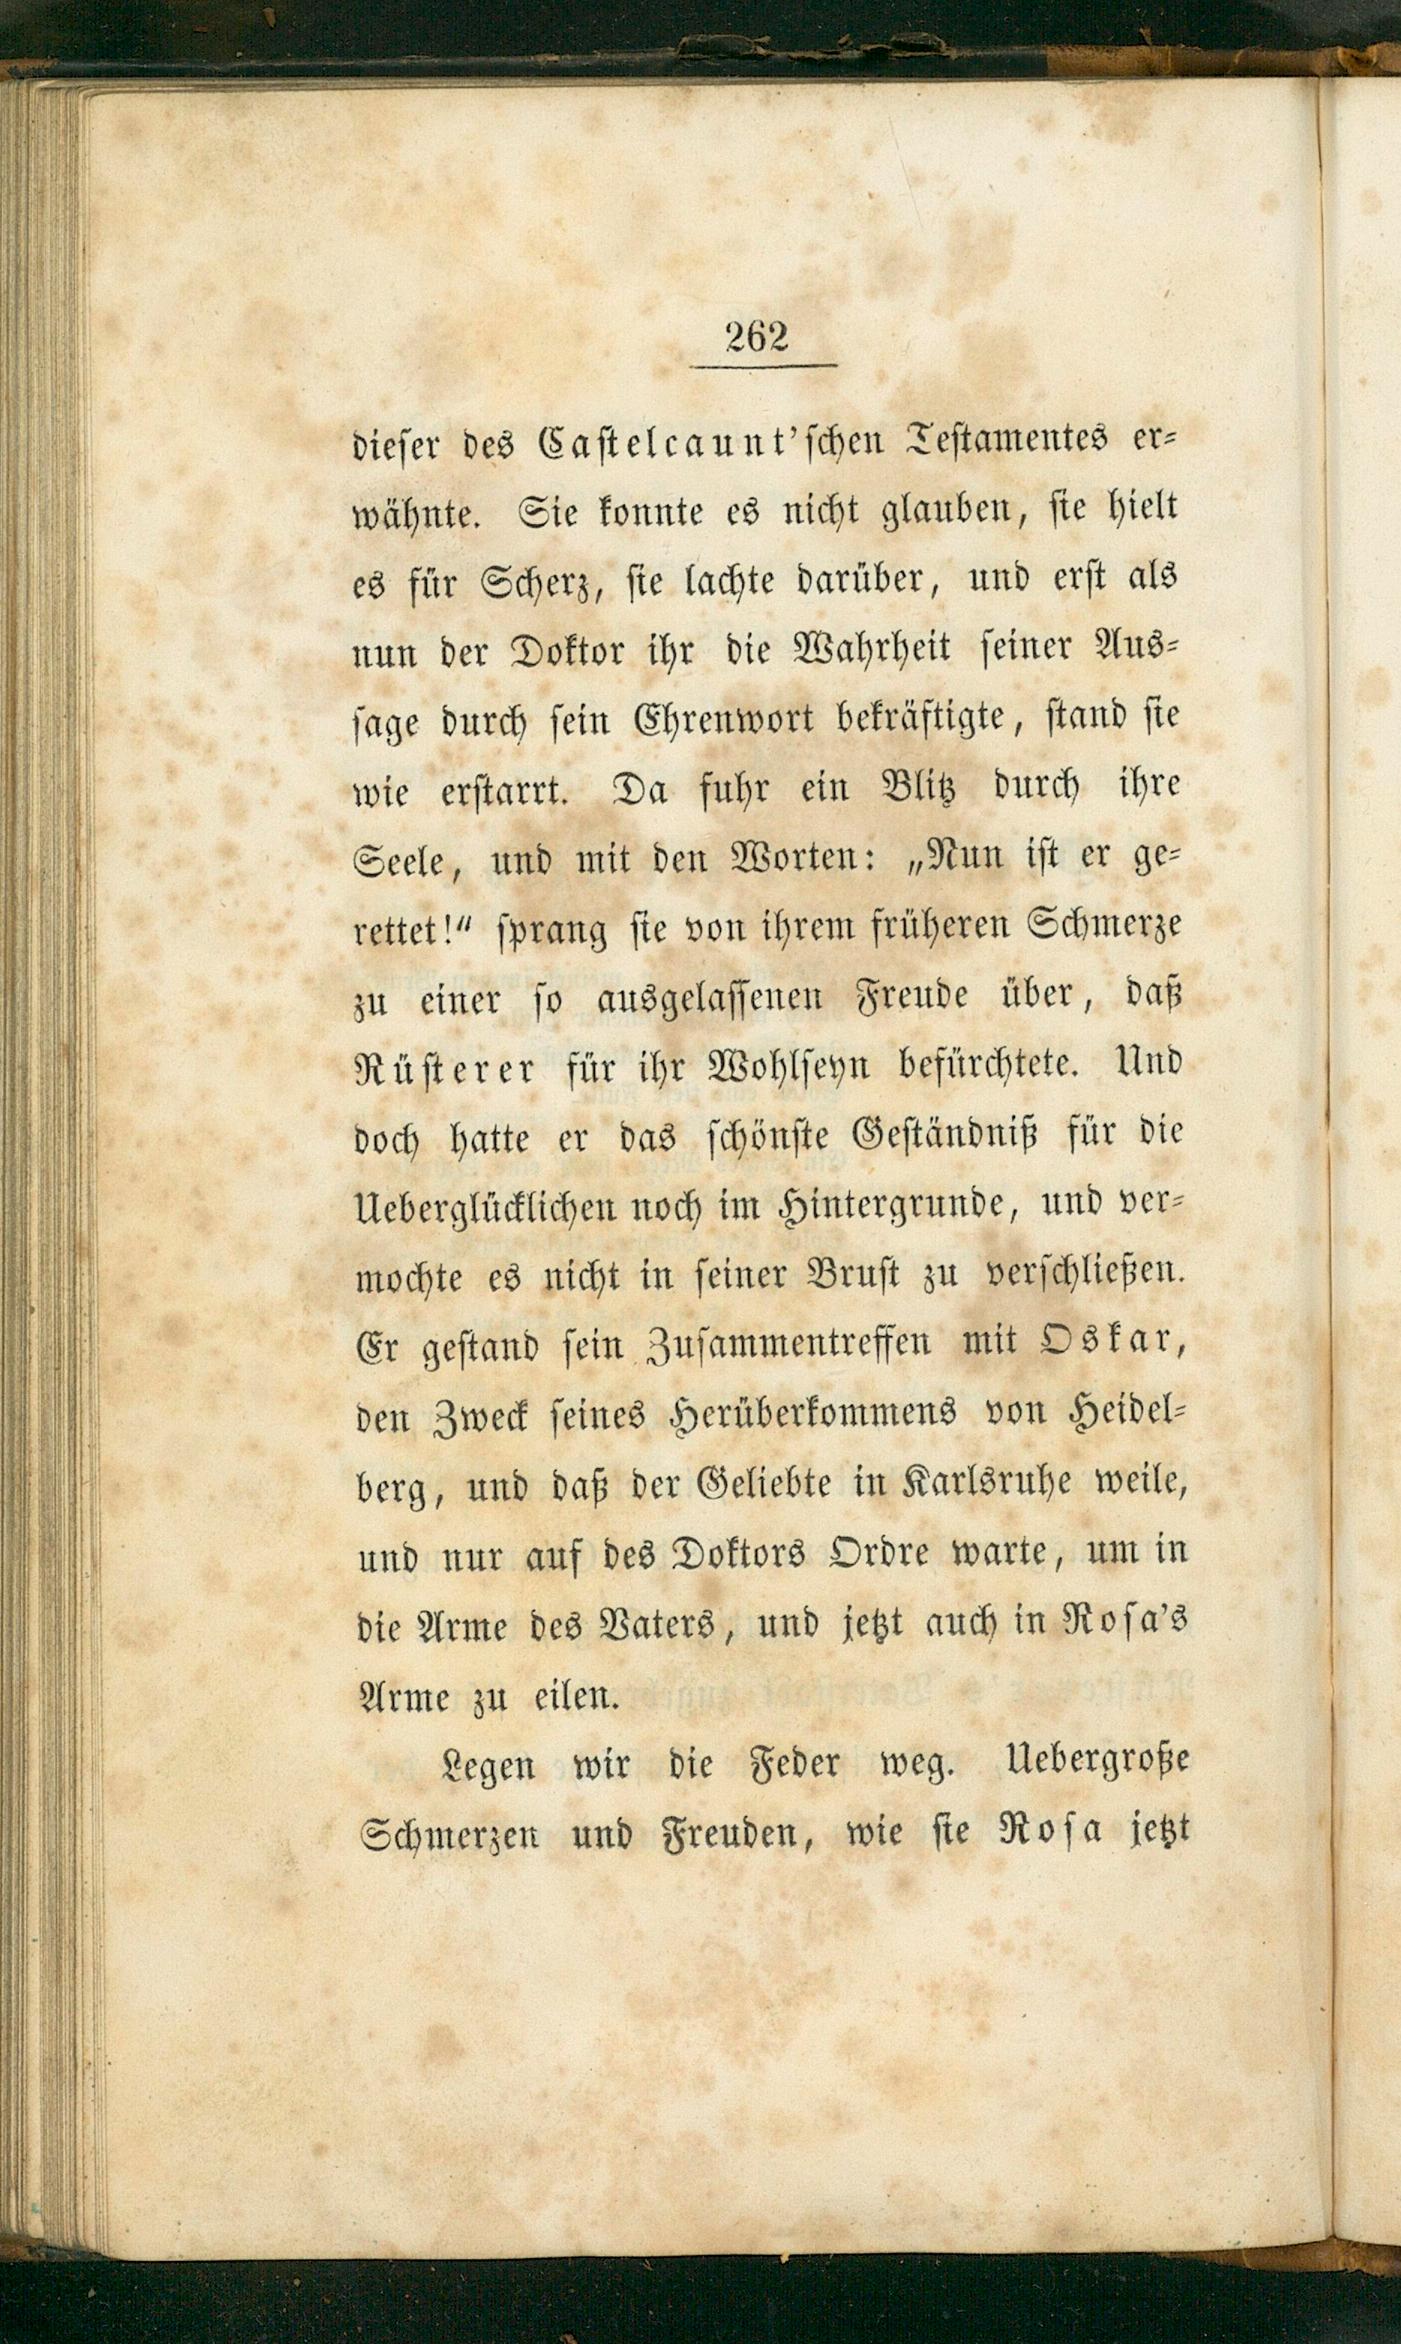 262
dieser des Castelcaunt'schen Testamentes er-
wähnte. Sie konnte es nicht glauben, sie hielt
es für Scherz, sie lachte darüber, und erst als
nun der Doktor ihr die Wahrheit seiner Aus-
sage durch sein Ehrenwort bekräftigte, stand sie
wie erstarrt. Da fuhr ein Blitz durch ihre
Seele, und mit den Worten: „Nun ist er ge-
rettet!“ sprang sie von ihrem früheren Schmerze
zu einer so ausgelassenen Freude über, daß
Rüsterer für ihr Wohlseyn befürchtete. Und
doch hatte er das schönste Geständniß für die
Ueberglücklichen noch im Hintergrunde, und ver-
mochte es nicht in seiner Brust zu verschließen.
Er gestand sein Zusammentreffen mit Oskar,
den Zweck seines Herüberkommens von Heidel-
berg, und daß der Geliebte in Karlsruhe weile,
und nur auf des Doktors Ordre warte, um in
die Arme des Vaters, und jetzt auch in Rosa's
Arme zu eilen.
Legen wir die Feder weg. Uebergroße
Schmerzen und Freuden, wie sie Rosa jetzt